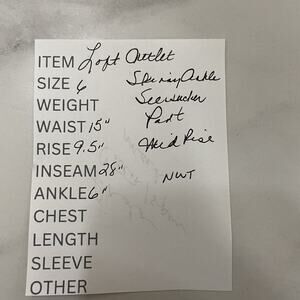 ITEM Loft Outlet
SIZE 6 Skinny Ankle
WEIGHT Seersucker
WAIST 15" Pant
RISE 9.5" Mid Rise
INSEAM 28"
ANKLE 6" NWT
CHEST
LENGTH
SLEEVE
OTHER